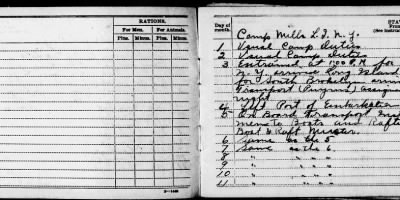 RATIONS.
For Men.
For Animals.
Plus.
Minus.
Plus.
Minus.
3—1428
Day of
month.
STA
From
(See instruc
Camp Mills L.I. N.Y.
1 Usual Camp Duties
2 Usual Camp Duties
3 Entrained at 1:00 P.M. for
N.Y. arrived Long Island
for South Brooklyn
Transport
4 Left Port of Embarkation
5 On Board Transport
Boats and Rafts
Boat & Raft Muster.
6 Same as the 5
7 Same as the 6
8 " " "
9 " " "
10 " " "
11 " " "